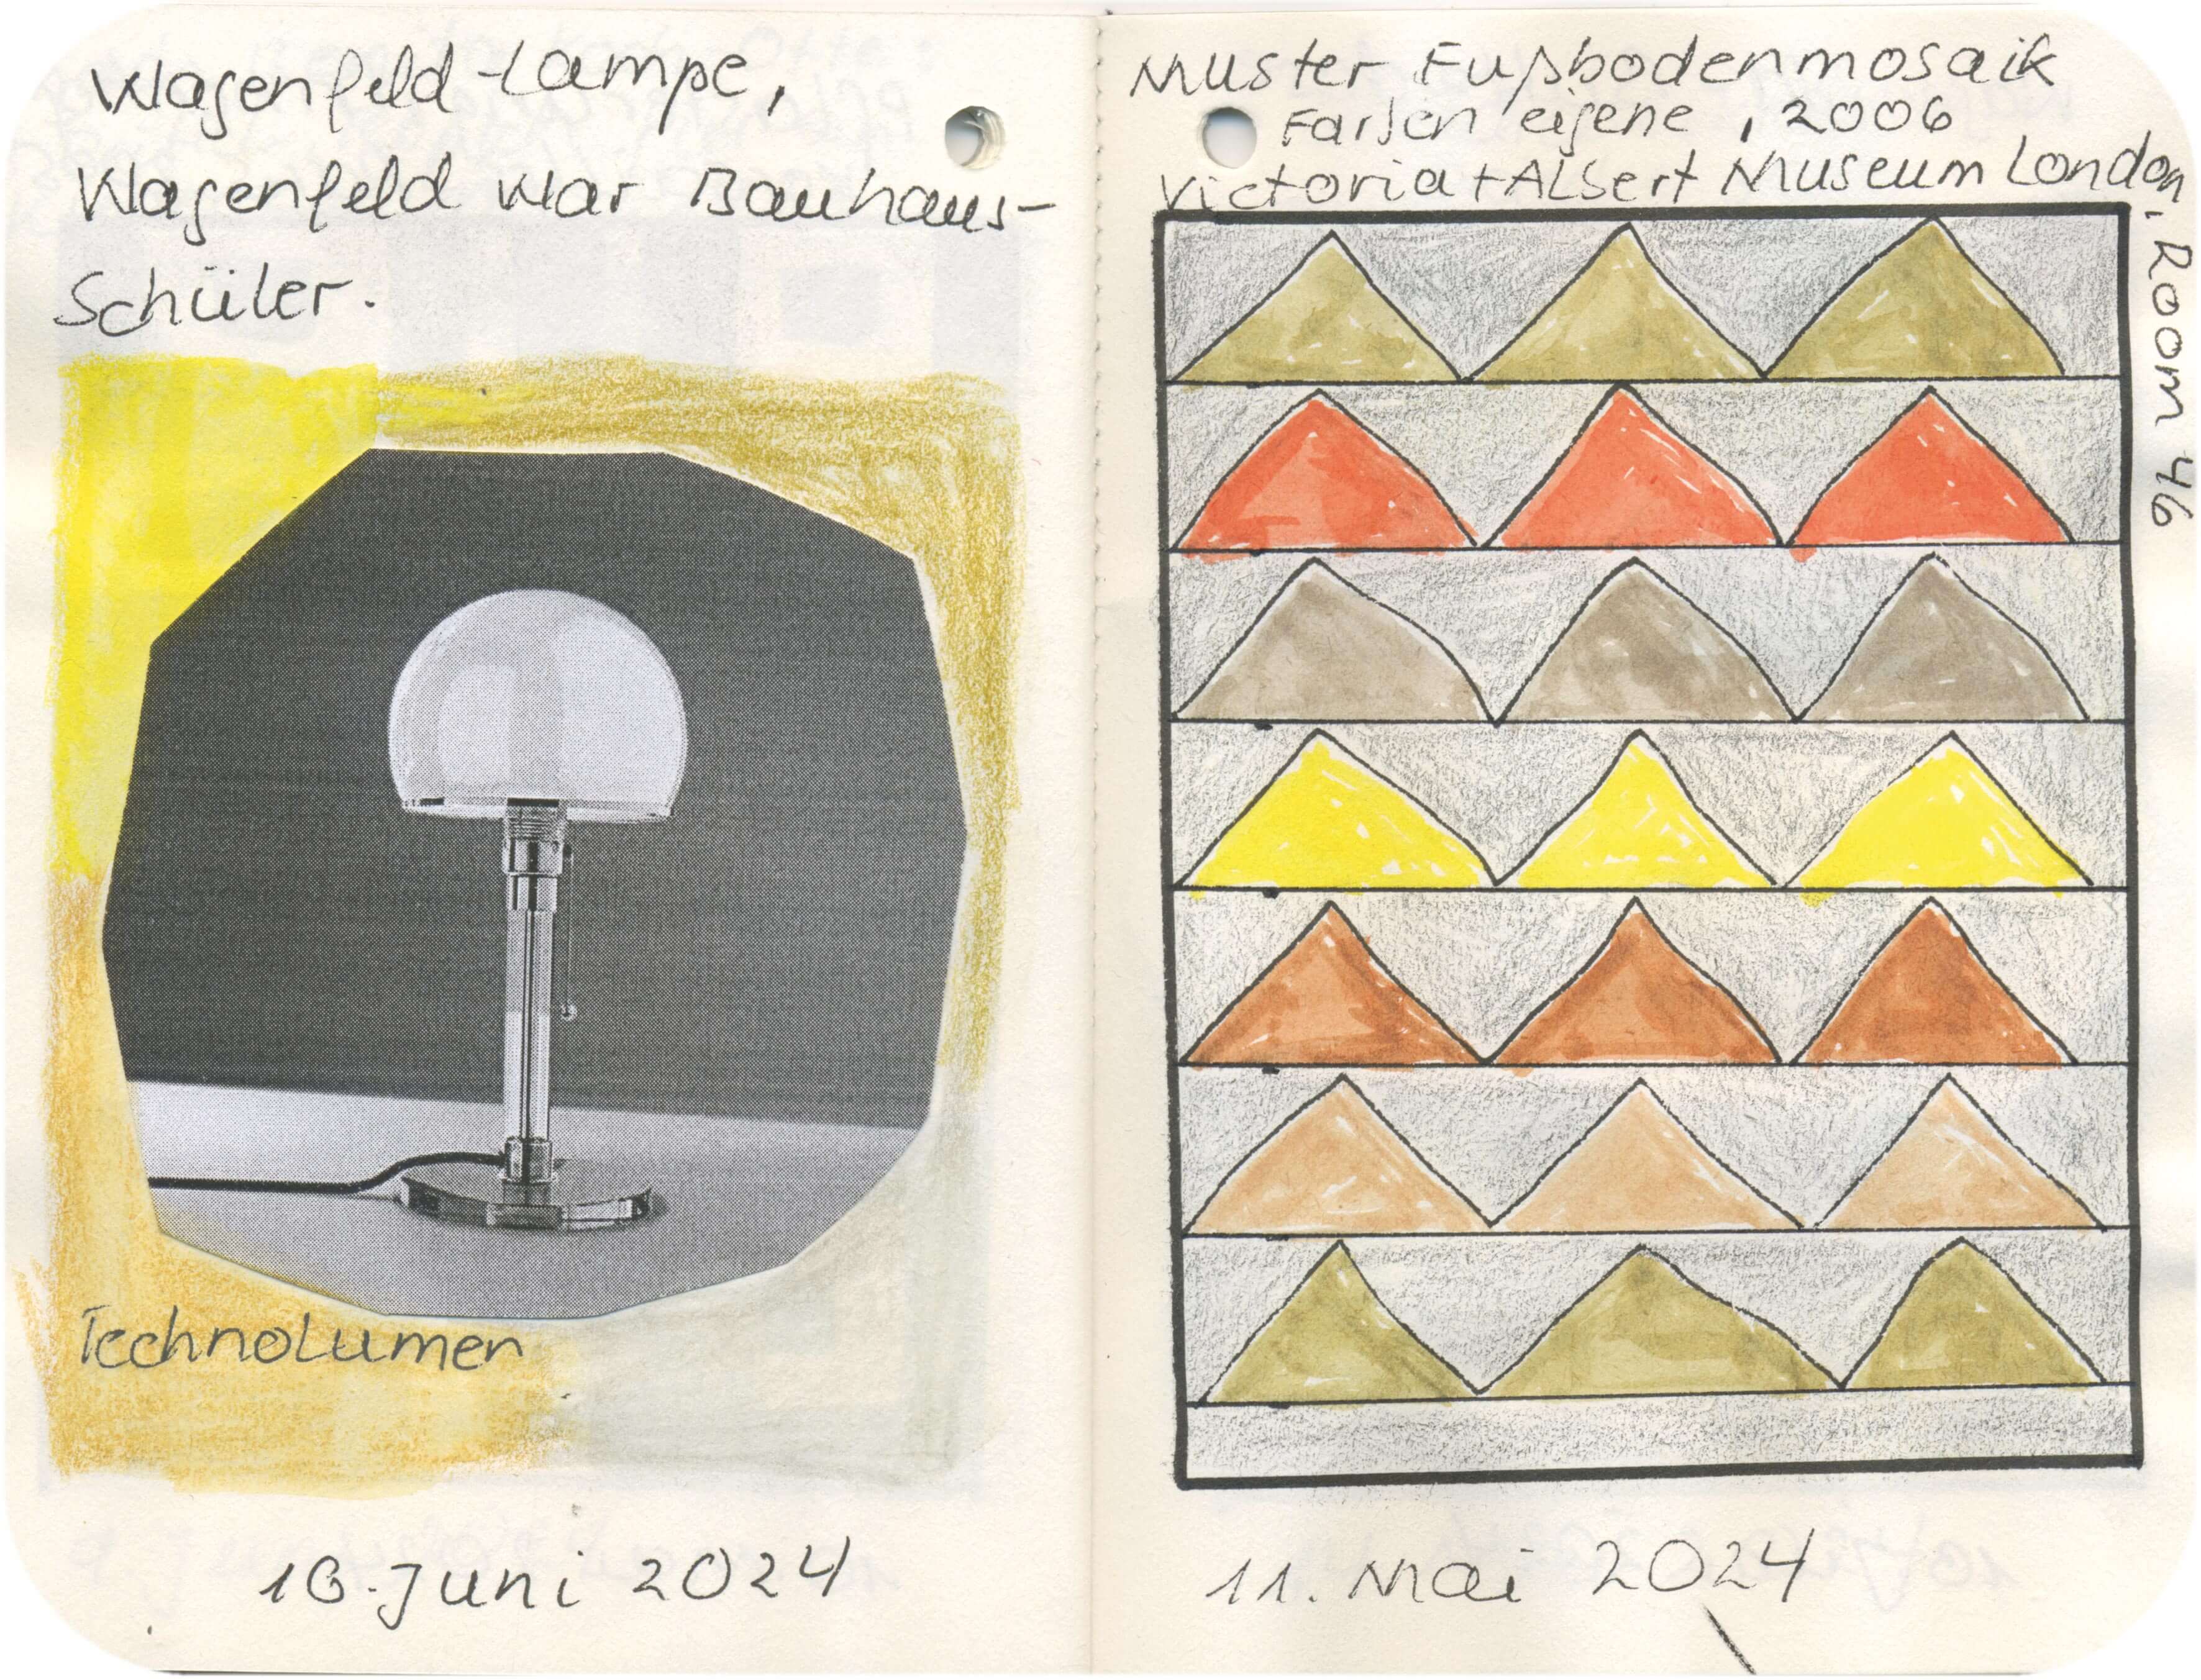 Wagenfeld-Lampe,
Wagenfeld war Bauhaus-
Schüler.
Technolumen
10. Juni 2024
Muster Fußbodenmosaik
Farben eigene, 2006
Victoria + Albert Museum London,
Room 46
11. Mai 2024